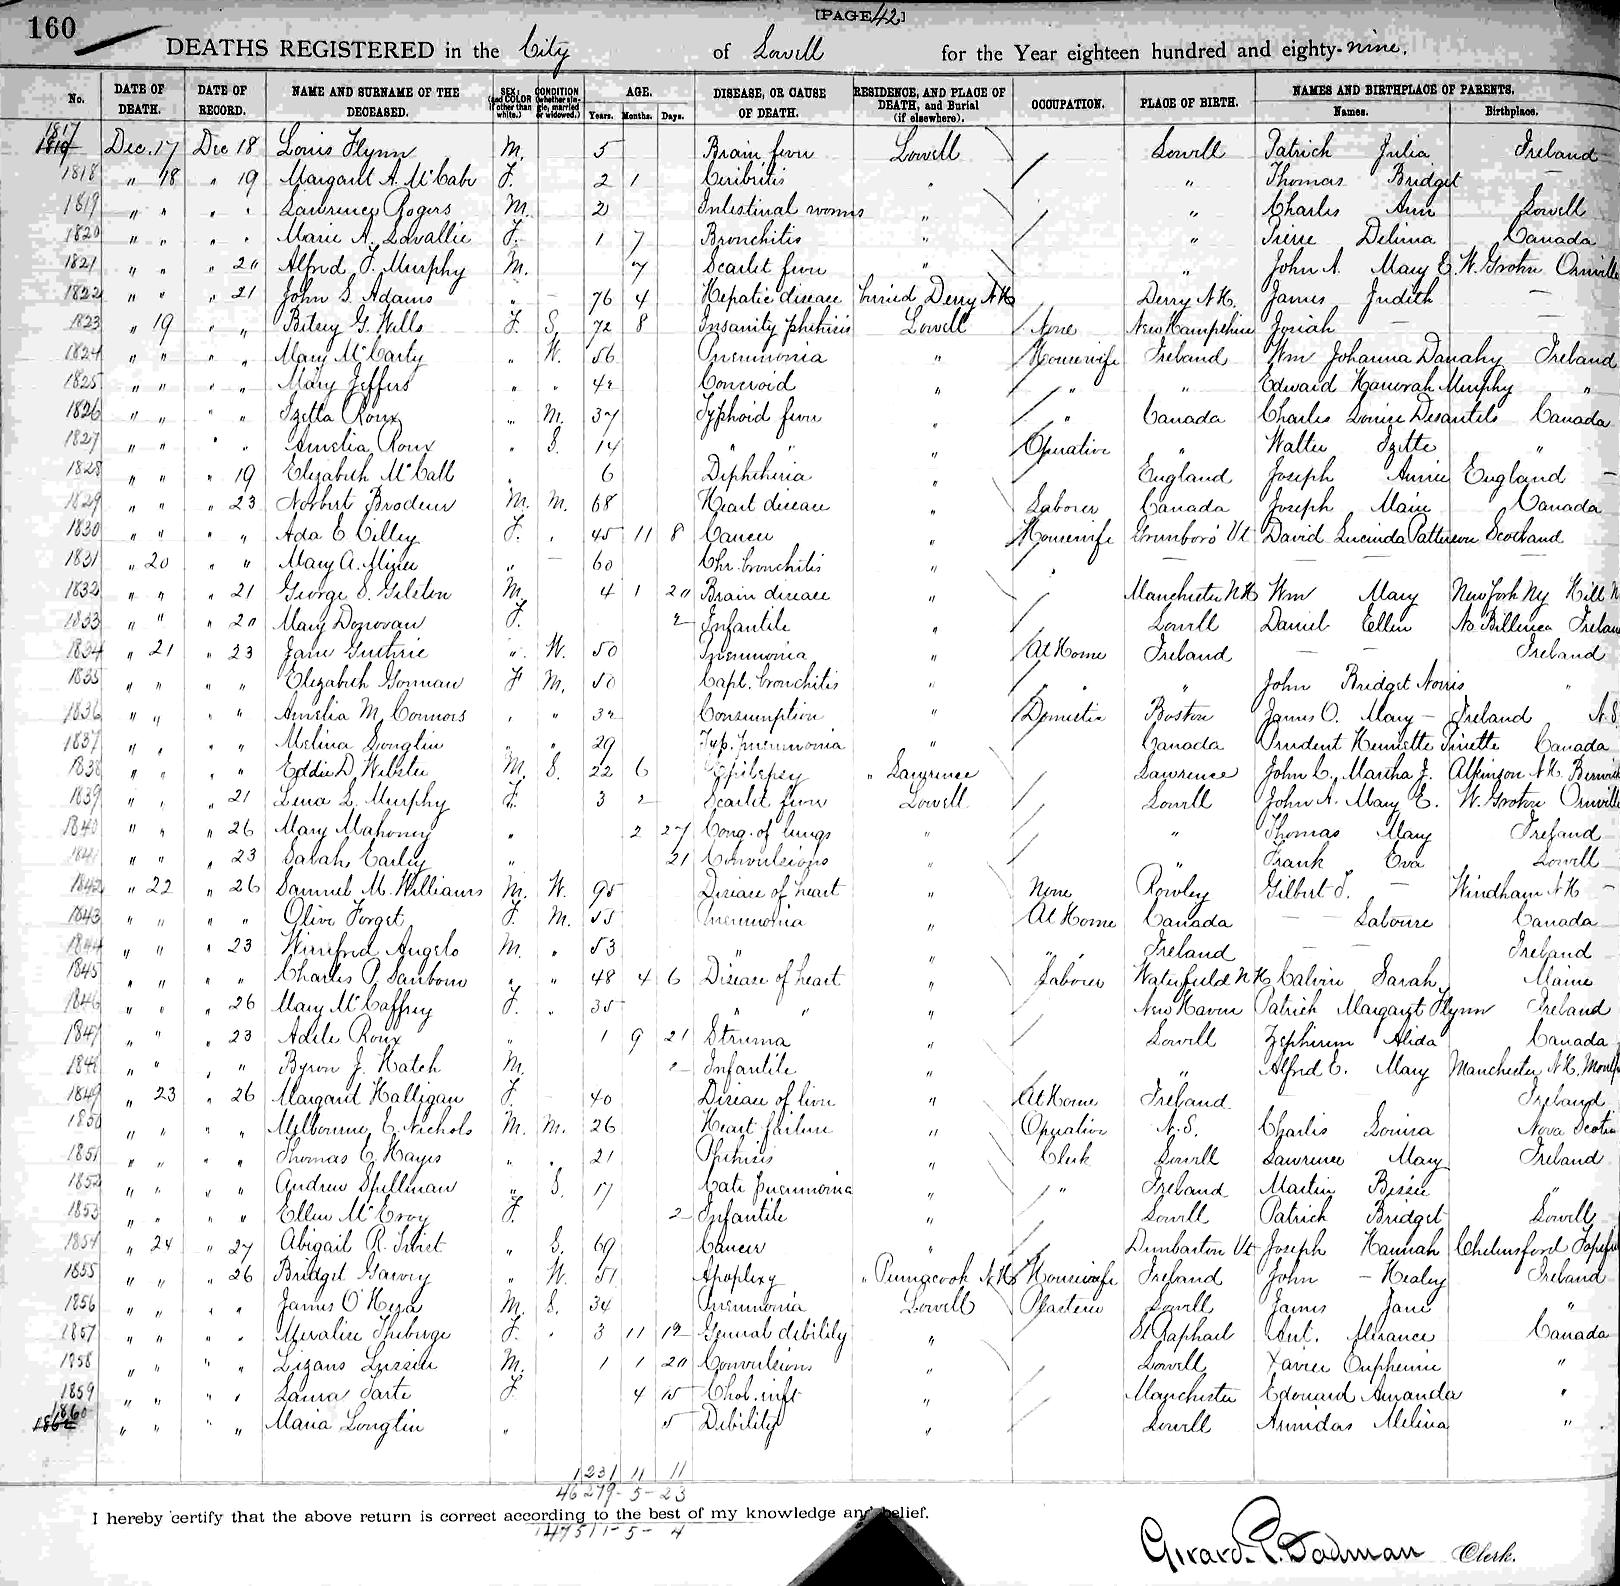 160
[PAGE 42]
DEATHS REGISTERED in the City of Lowell for the Year eighteen hundred and eighty-nine.
No. DATE OF DEATH. DATE OF RECORD. NAME AND SURNAME OF THE DECEASED. SEX, (and COLOR if other than white.) CONDITION (whether single, married or widowed.) AGE. Years. Months. Days. DISEASE, OR CAUSE OF DEATH. RESIDENCE, AND PLACE OF DEATH, and Burial (if elsewhere). OCCUPATION. PLACE OF BIRTH. NAMES AND BIRTHPLACE OF PARENTS. Names. Birthplace.
1817 Dec. 17 Dec 18 Louis Flynn M. 5 Brain fever Lowell Lowell Patrick Julia Ireland
1818 " 18 " 19 Margaret A. McCabe F. 2 1 " " Thomas Bridget —
1819 " " " " Lawrence Rogers M. 2 Intestinal worms " " Charles Ann Lowell
1820 " " " " Marie A. Lavallie F. 1 7 Bronchitis " " Pierre Delima Canada
1821 " " " 20 Alfred F. Murphy M. 7 Scarlet fever " " John A. Mary E. W. Groton
1822 " " " 21 John S. Adams " 76 4 Hepatic disease buried Derry N.H. Derry N.H. James Judith —
1823 " 19 " " Betsey G. Wells F. S. 72 8 Insanity phthisis Lowell None New Hampshire Josiah — —
1824 " " " " Mary McCarty " W. 56 Pneumonia " Housewife Ireland Wm Johanna Danahy Ireland
1825 " " " " Mary Jeffers " " 42 " " " Edward Hanorah Murphy "
1826 " " " " Izetta Roux " M. 37 Typhoid fever " " Canada Charles Louise Desautels Canada
1827 " " " " Amelia Roux " S. 14 " " " Operative " Walter Izette "
1828 " " " 19 Elizabeth McCall " 6 Diphtheria " England Joseph Annie England —
1829 " " " 23 Norbert Brodeur M. M. 68 Heart disease " Laborer Canada Joseph Marie Canada
1830 " " " " Ada E Cilley F. " 45 11 8 Cancer " Housewife David Lucinda Patterson Scotland
1831 " 20 " " Mary A. " — 60 Chr. bronchitis " " — — —
1832 " " " 21 George S. M. 4 1 20 Brain disease " Manchester N.H. Wm Mary New York Ny
1833 " " " 20 Mary Donovan F. 2 Infantile " Lowell Daniel Ellen No Billerica
1834 " 21 " 23 Jane Guthrie " W. 50 Pneumonia " At Home Ireland — — Ireland
1835 " " " " Elizabeth Gorman F M. 50 Capl. bronchitis " " " John Bridget Norris "
1836 " " " " Amelia M. Connors " " 32 Consumption " Domestic Boston James O. Mary — Ireland N.S.
1837 " " " " Melina Longlin " " 29 Typ. pneumonia " Canada Prudent Henriette Canada
1838 " " " " Eddie D. Webster M. S. 22 6 Epilepsy " Lawrence Lawrence John C. Martha J. Atkinson N.H.
1839 " " " 21 Lena L. Murphy F. 3 2 Scarlet fever Lowell Lowell John A. Mary E. W. Groton
1840 " " " 26 Mary Mahoney " 2 27 Cong. of lungs " " Thomas Mary Ireland
1841 " " " 23 Sarah Earley " 21 Convulsions " " Frank Eva Lowell
1842 " 22 " 26 Samuel M. Williams M. W. 95 Disease of heart " None Rowley Gilbert — Windham N.H. —
1843 " " " " Olive Forget F. M. 55 Pneumonia " At Home Canada — Canada
1844 " " " 23 Winifred Angelo M. " 53 " " " " Ireland — — Ireland
1845 " " " " Charles P. Sanborn " " 48 4 6 Disease of heart " Laborer Calvin Sarah Maine
1846 " " " 26 Mary McCaffrey F. " 35 " " " New Haven Patrick Margaret Flynn Ireland
1847 " " " 23 Adele Roux " 1 9 21 Struma " Lowell Alida Canada
1848 " " " " Byron J. Hatch M. Infantile " " Alfred E. Mary Manchester N.H.
1849 " 23 " 26 Margaret Halligan F. — 40 Disease of liver " At Home Ireland Ireland
1850 " " " " Melbourne E. Nichols M. M. 26 Heart failure " Operative N.S. Charles Louisa Nova Scotia
1851 " " " " Thomas C. Hayes " " 21 Phthisis " Clerk Lowell Lawrence Mary Ireland
1852 " " " " Andrew Spellman " S. 17 Cat. Pneumonia " " Ireland Martin Bessie "
1853 " " " " Ellen McEvoy F. 2 Infantile " Lowell Patrick Bridget Lowell
1854 " 24 " 27 Abigail R. " S. 69 Cancer " Dunbarton Vt Joseph Hannah Chelmsford
1855 " " " 26 Bridget Garvey " W. 51 Apoplexy " Pennacook N.H. Housewife Ireland John — Healey Ireland
1856 " " " " James O'Hera M. S. 34 Pneumonia Lowell Plasterer Lowell James Jane "
1857 " " " " F. " 3 11 12 General debility " St Raphael Ant. Canada
1858 " " " " M. 1 1 20 Convulsions " Lowell Xavier Euphemie "
1859 " " " " Laura Tarte F. 4 15 Chol. inft " Manchester Edouard Amanda "
1860 " " " " Maria Longlin " 5 Debility " Lowell Melina "
1231 11 11
46279-5-23
147511-5-4
I hereby certify that the above return is correct according to the best of my knowledge and belief.
Girard P. Dadman Clerk.